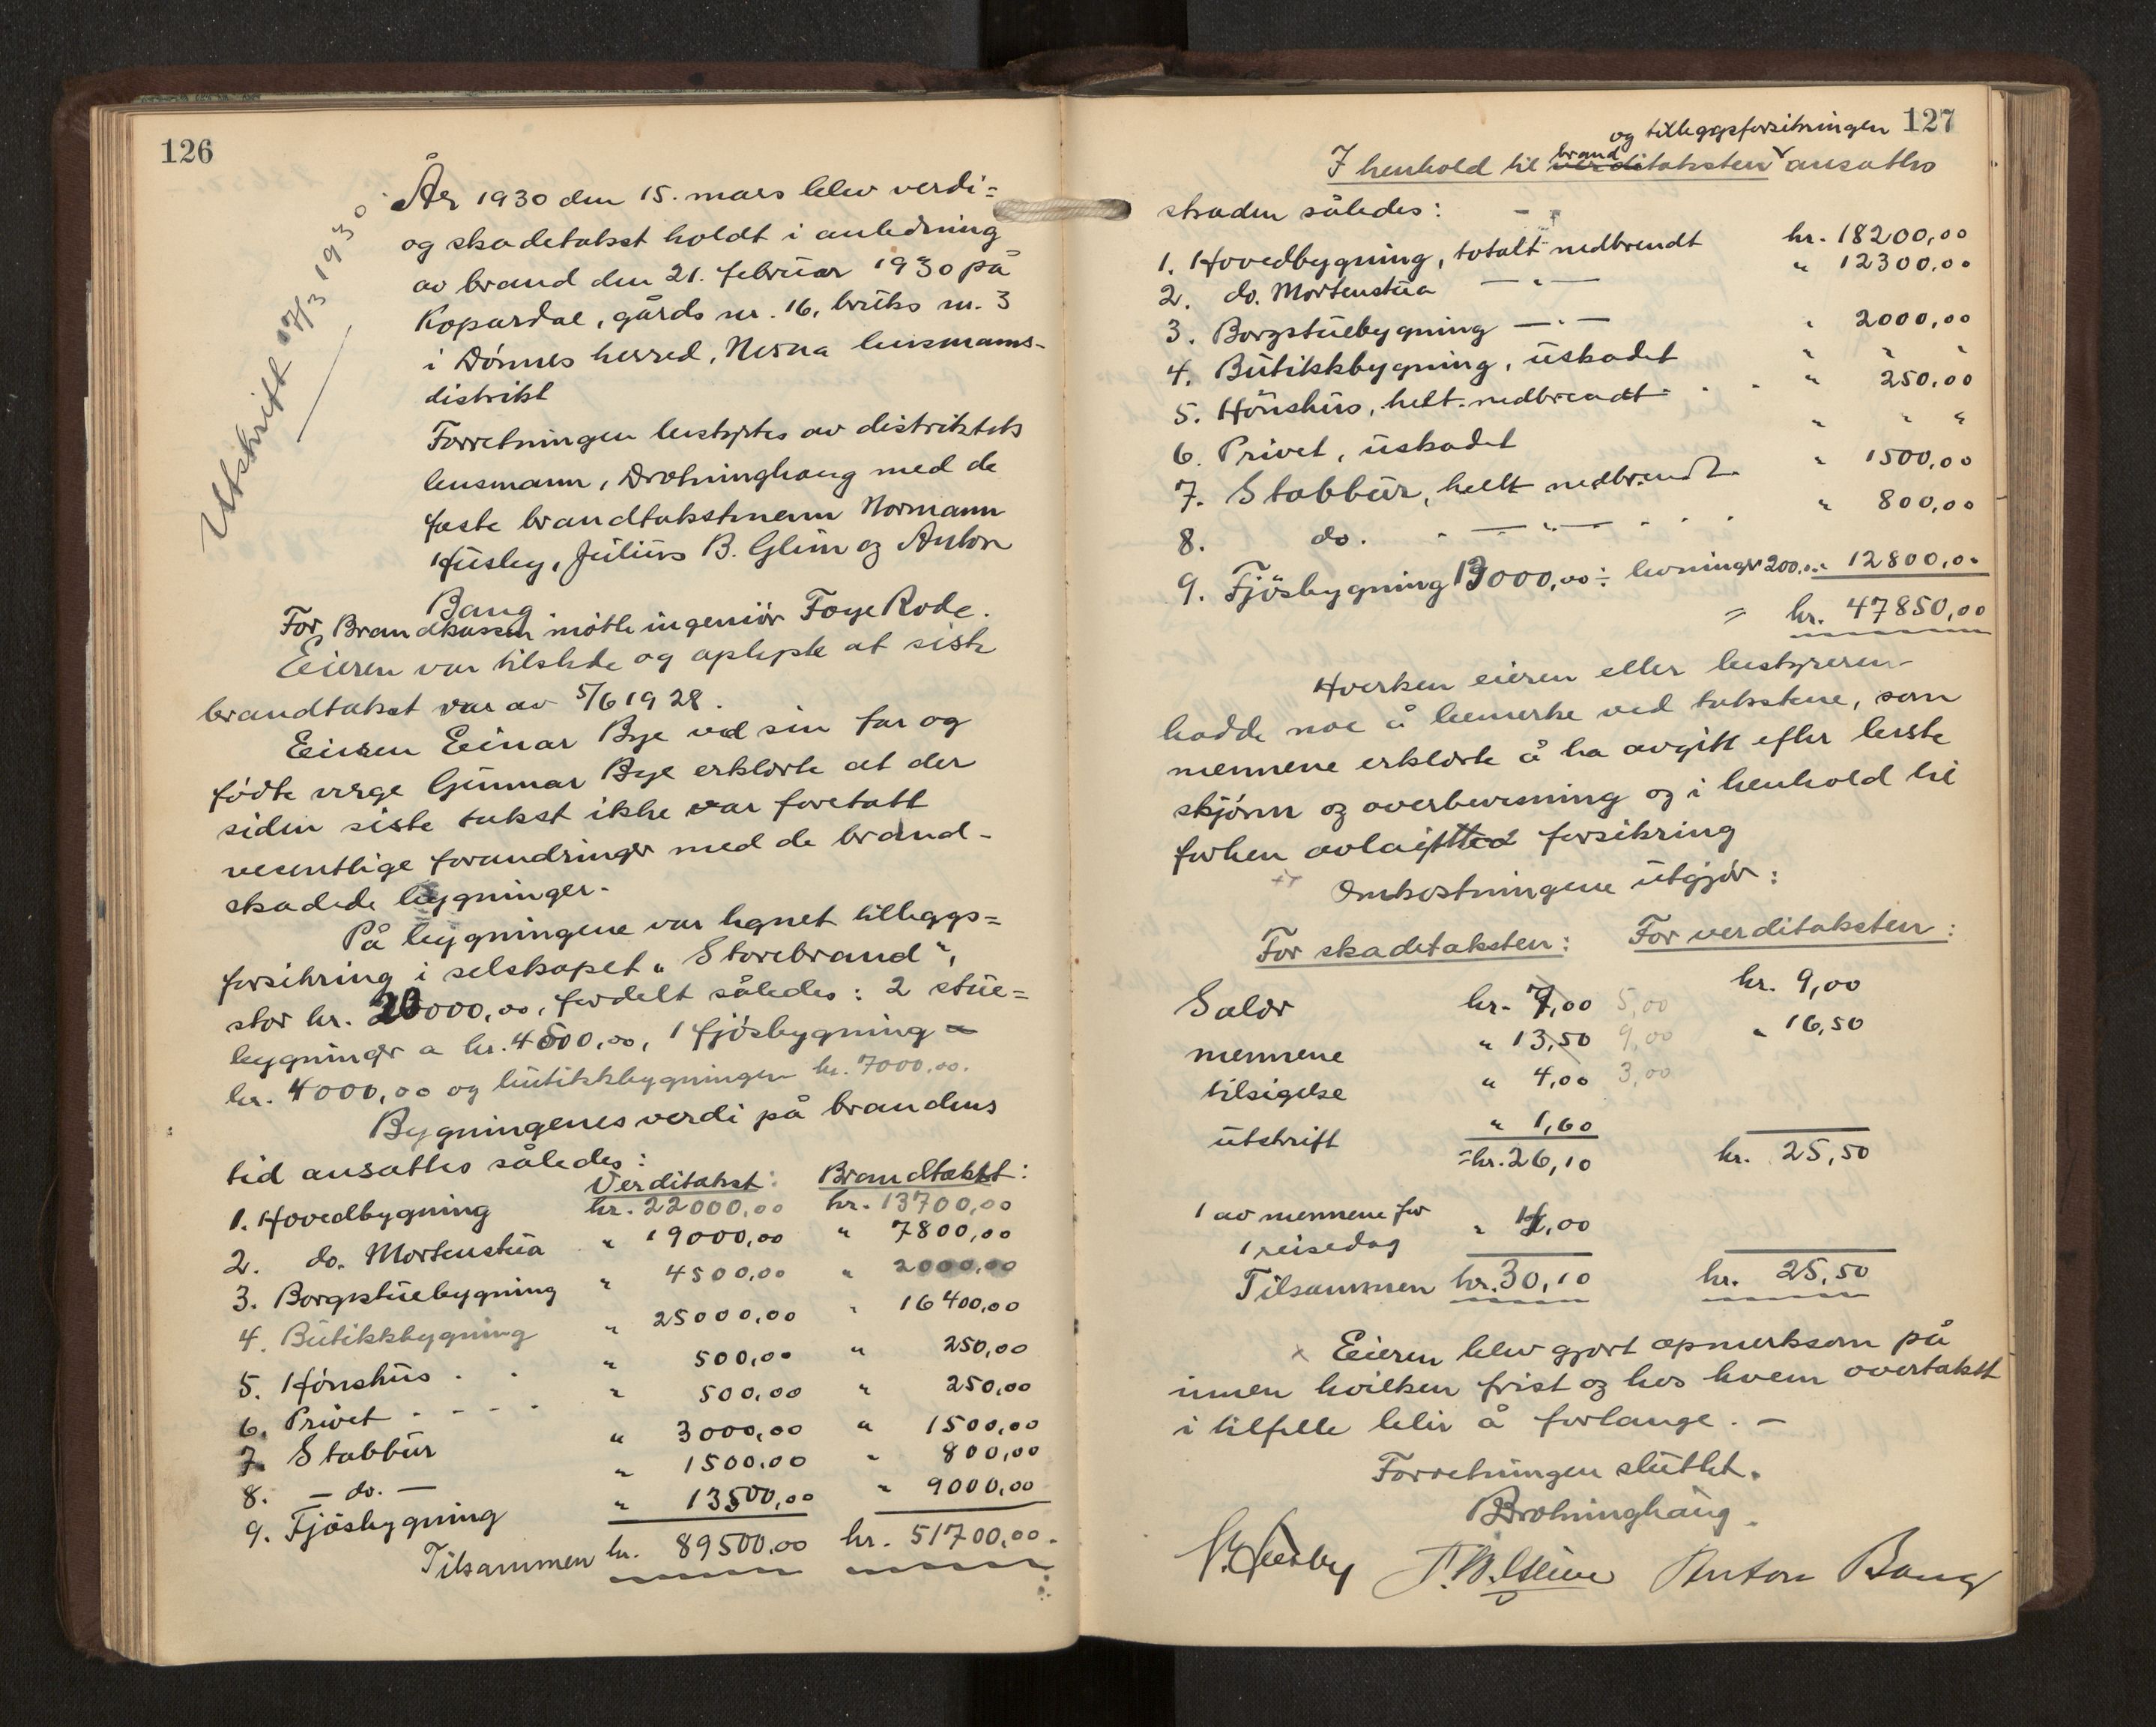 126
Utskrift 17/3 1930.
År 1930 den 15. mars blev verdi=
og skadetakst holdt i anledning
av brand den 21. februar 1930 på
Kopardal, gårds nr. 16, bruks nr. 3
i Dönnes herred, Nesna lensmanns-
distrikt
Forretningen bestyrtes av distriktets
lensmann, Drotninghaug med de
faste brandtakstmenn Normann
Husby, Julius B. Glein og Anton
Bang.
For Brandkassen møtte ingeniör Foye Rode.
Eieren var tilstede og oplyste at siste
brandtakst var av 5/6 1928.
Eieren Einar Bye ved sin far og
födte verge Gunnar Bye erklærte at der
siden siste takst ikke var foretatt
vesentlige forandringer med de brand-
skadede bygninger.
På bygningene var tegnet tilleggs=
forsikring i selskapet "Storebrand",
stor kr. 20000,00, fordelt således: 2 stue=
bygninger a kr. 4500,00, 1 fjösbygning a
kr. 4000,00 og butikkbygningen kr. 7000,00.
Bygningenes verdi på brandens
tid ansattes således:
Verditakst: Brandtakst:
1. Hovedbygning kr. 22000,00 kr. 13700,00
2. do. Mortenstua " 19000,00 " 7800,00
3. Borgstuebygning " 4500,00 " 2000,00
4. Butikkbygning " 25000,00 " 16400,00
5. Hönshus . . " 500,00 " 250,00
6. Privet - - - - " 500,00 " 250,00
7. Stabbur " 3000,00 " 1500,00
8. — do. — " 1500,00 " 800,00
9. Fjösbygning " 13500,00 " 9000,00
Tilsammen kr. 89500,00 kr. 51700,00.
127
og tilleggsforsikringen
brand
I henhold til verditaksten ansattes
skaden således:
1. Hovedbygning, totalt nedbrendt kr. 18200,00
2. do. Mortenstua — " — " 12300,00
3. Borgstuebygning — " — " 2000,00
4. Butikkbygning, uskadet " " "
5. Hönshus, helt nedbrendt " 250,00
6. Privet, uskadet " " "
7. Stabbur, helt nedbrendt " 1500,00
8. do. — " — " 800,00
9. Fjösbygning 13000,00 ÷ levninger 200,00 " 12800,00
= kr. 47850,00
Hverken eieren eller bestyreren
hadde noe å bemerke ved takstene, som
mennene erklærte å ha avgitt efter beste
skjönn og overbevisning og i henhold til
forhen avlagt forsikring
Omkostningene utgjör:
For skadetaksten: For verditaksten:
Salær kr. 7,00 5,00 kr. 9,00
mennene " 13,50 9,00 " 16,50
tilsigelse " 4,00 3,00
utskrift " 1,60
= kr. 26,10 kr. 25,50
1 av mennene for
1 reisedag " 4,00
Tilsammen kr. 30,10 kr. 25,50
x Eieren blev gjort opmerksom på
innen hvilken frist og hos hvem overtakst
i tilfelle blir å forlange. —
Forretningen sluttet.
Drotninghaug.
N. Husby J. B. Glein Anton Bang